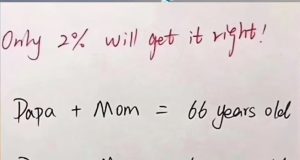 Only 2% will get it right!
Papa + Mom = 66 years old